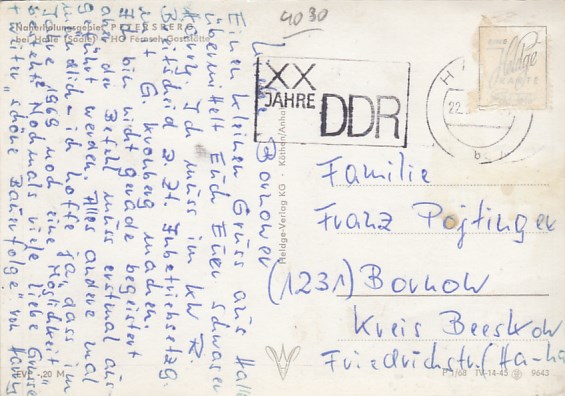 4030
Naherholungsgebiet PETERSBERG
bei Halle (Saale) • HO Fernseh-Gaststätte
Liebe Bornower
Einen kleinen Gruss aus Halle
übermittelt Euch Euer Schwager
Harry. Ich muss im KW R.
Breitscheid z. Zt. Inbetriebsetzg.
mit G. Kronberg machen.
Ich bin nicht gerade begeistert
aber der Befehl muss erstmal aus-
geführt werden. Alles andere mal
mündlich - ich hoffe ja, dass im
Jahre 1969 noch eine Möglichkeit
besteht. Nochmals viele liebe Grüsse
weiter „schöne Baufolge" von Harry
EVP -,20 M
Heldge-Verlag KG Köthen/Anha
XX
JAHRE DDR
H
22.
EINE
Heldge
KARTE
Familie
Franz
(1231) Bornow
Kreis Beeskow
Friedrichstr/
P 1/68 IV-14-45 9643